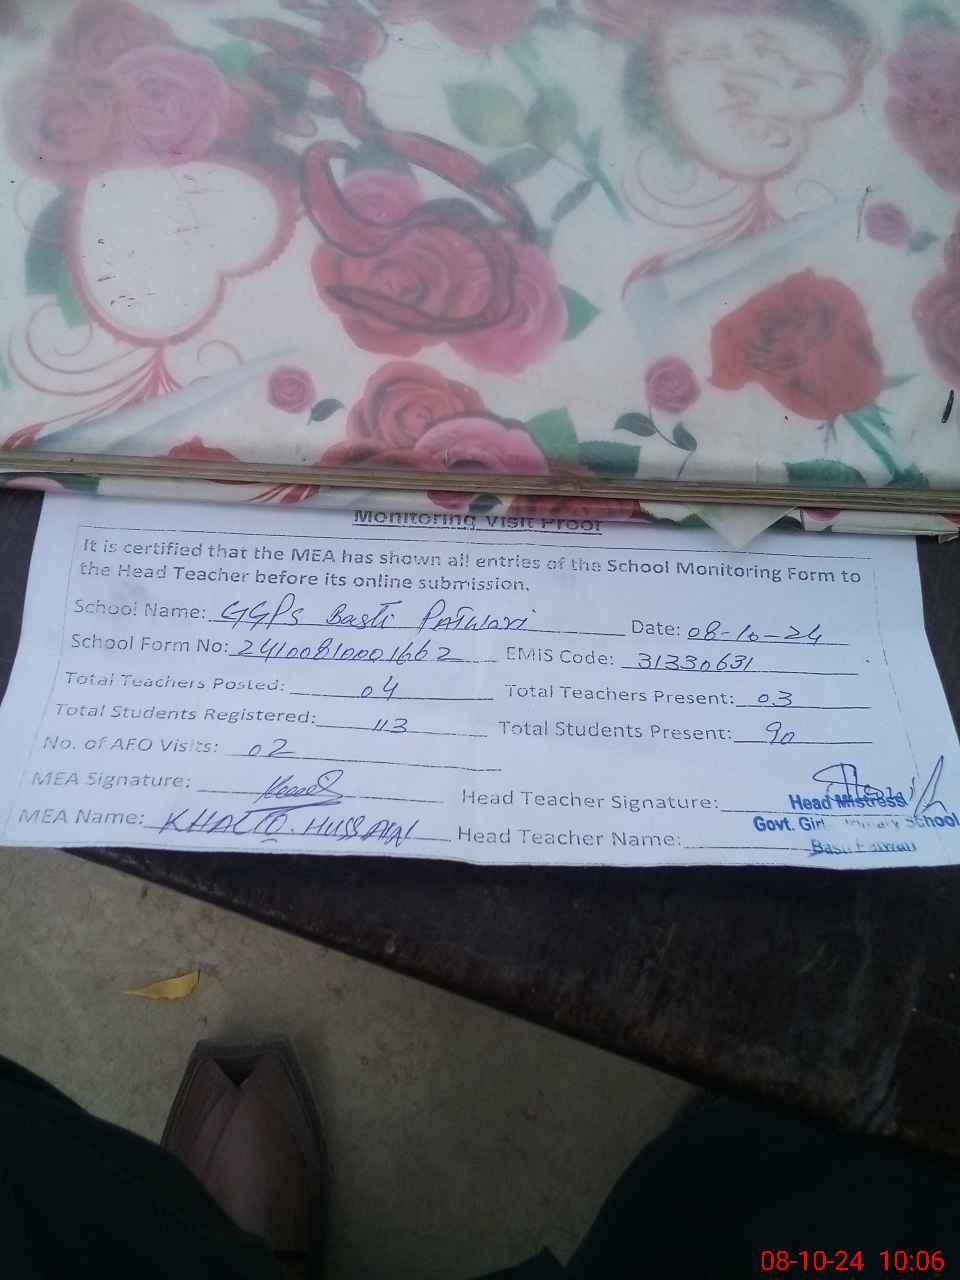 Monitoring Visit Proof
It is certified that the MEA has shown all entries of the School Monitoring Form to
the Head Teacher before its online submission.
School Name: GGPS Basti Patwari Date: 08-10-24
School Form No: 24100810001662 EMIS Code: 31330631
Total Teachers Posted: 04 Total Teachers Present: 03
Total Students Registered: 113 Total Students Present: 90
No. of AEO Visits: 02
MEA Signature: Head Teacher Signature:
Head Mistress
MEA Name: Head Teacher Name:
HUSSAIN
Govt. Girl Primary School
Basti Patwari
08-10-24 10:06